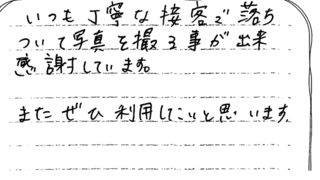 いつも丁寧な接客で落ち
ついて写真を撮る事が出来
感謝しています。
またぜひ利用したいと思います。